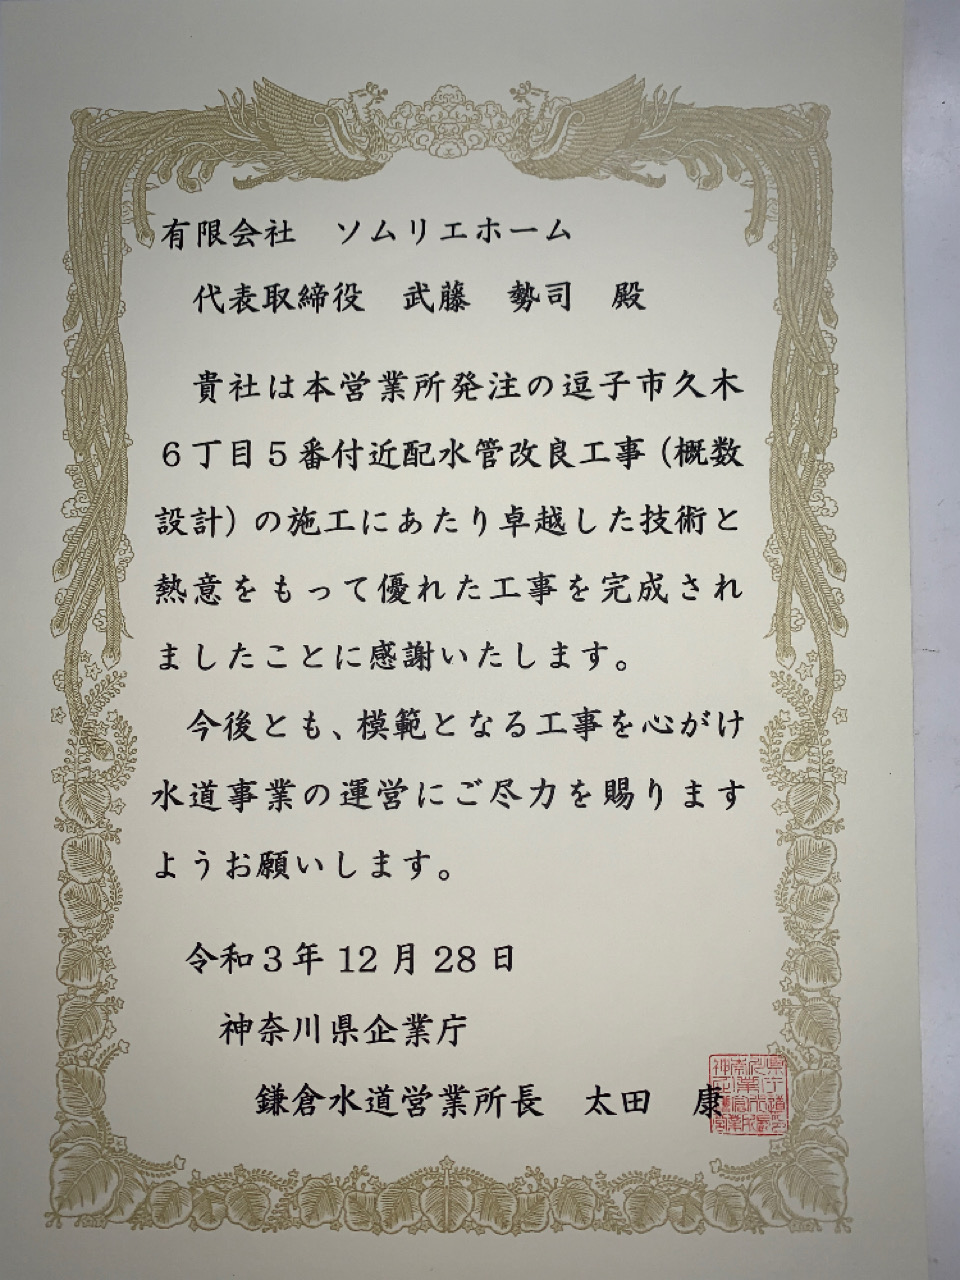 有限会社　ソムリエホーム
代表取締役　武藤　勢司　殿
貴社は本営業所発注の逗子市久木
６丁目５番付近配水管改良工事（概数
設計）の施工にあたり卓越した技術と
熱意をもって優れた工事を完成され
ましたことに感謝いたします。
今後とも、模範となる工事を心がけ
水道事業の運営にご尽力を賜ります
ようお願いします。
令和３年 12 月 28 日
神奈川県企業庁
鎌倉水道営業所長　太田　康